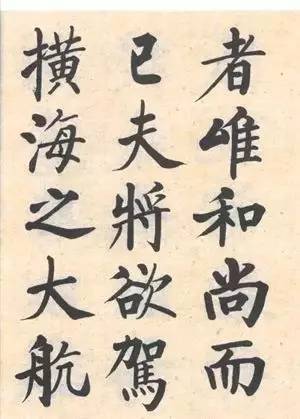 者唯和尚而
已夫將欲駕
橫海之大航